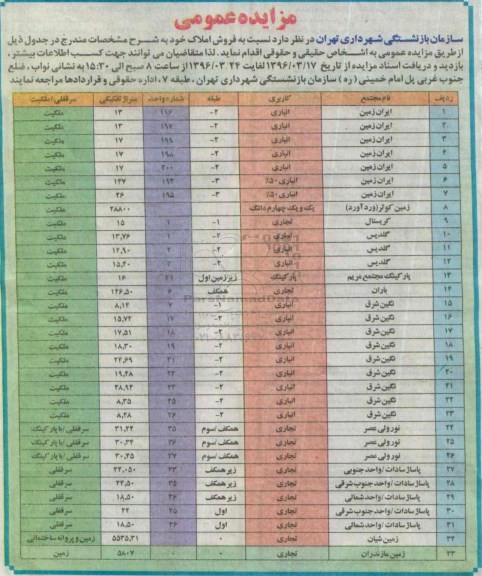 مزایده عمومی
سازمان بازنشستگی شهرداری تهران در نظر دارد نسبت به فروش املاک خود به شرح مشخصات مندرج در جدول ذیل
از طریق مزایده عمومی به اشخاص حقیقی و حقوقی اقدام نماید . لذا متقاضیان می توانند جهت کسب اطلاعات بیشتر ،
بازدید و دریافت اسناد مزایده از تاریخ ۱۳۹۶/۰۳/۱۷ لغایت ۱۳۹۶/۰۳/۲۲ از ساعت ۸ صبح الی ۱۵:۳۰ به نشانی نواب ، ضلع
جنوب غربی پل امام خمینی (ره) سازمان بازنشستگی شهرداری تهران ، طبقه ۷ ، اداره حقوقی و قراردادها مراجعه نمایند
ردیف نام مجتمع کاربری طبقه شماره واحد متراژ تفکیکی سرقفلی / ملکیت
۱ ایران زمین انباری ۲- ۱۱۶ ۱۳ ملکیت
۲ ایران زمین انباری ۲- ۱۹۷ ۱۳ ملکیت
۳ ایران زمین انباری ۲- ۱۹۹ ۱۷ ملکیت
۴ ایران زمین انباری ۲- ۱۹۸ ۱۷ ملکیت
۵ ایران زمین انباری ۲- ۲۰۰ ۱۷ ملکیت
۶ ایران زمین انباری ۵۰٪ ۳- ۱۹۴ ۱۴۷ ملکیت
۷ ایران زمین انباری ۵۰٪ ۳- ۱۹۵ ۲۶ ملکیت
۸ زمین کولر (ورد آورد) یک و یک چهارم دانگ ۲۸۸۰۰ ملکیت
۹ کریستال تجاری ۱- ۱ ۱۵ ملکیت
۱۰ گلدیس انباری ۲- ۱۳,۷۶ ملکیت
۱۱ گلدیس انباری ۲- ۱۲,۹۰ ملکیت
۱۲ گلدیس انباری ۲- ۱۵,۴۰ ملکیت
۱۳ پارکینگ مجتمع مریم پارکینگ زیرزمین اول ۲۱ ۱۶ ملکیت
۱۴ باران تجاری همکف ۶ ۱۲۶,۵۰ ملکیت
۱۵ نگین شرق انباری ۱- ۷ ۸,۱۴ ملکیت
۱۶ نگین شرق انباری ۲- ۱۷ ۱۵,۷۲ ملکیت
۱۷ نگین شرق انباری ۲- ۱۸ ۱۷,۵۱ ملکیت
۱۸ نگین شرق انباری ۲- ۱۹ ۱۸,۳۰ ملکیت
۱۹ نگین شرق انباری ۲- ۲۱ ۲۴,۶۹ ملکیت
۲۰ نگین شرق انباری ۲- ۲۲ ۱۹,۴۸ ملکیت
۲۱ نگین شرق انباری ۲- ۲۴ ۲۸,۹۲ ملکیت
۲۲ نگین شرق انباری ۲- ۲۵ ۸,۳۵ ملکیت
۲۳ نگین شرق انباری ۲- ۲۶ ۸,۲۸ ملکیت
۲۴ نور ولی عصر تجاری همکف / سوم ۳۵ ۳۱,۲۴ سرقفلی / با پارکینگ
۲۵ نور ولی عصر تجاری همکف / سوم ۳۶ ۳۰,۳۴ سرقفلی / با پارکینگ
۲۶ نور ولی عصر تجاری همکف / سوم ۳۷ ۳۰,۴۵ سرقفلی / با پارکینگ
۲۷ پاساژ سادات / واحد جنوبی تجاری زیر همکف ۲۳ ۲۲,۰۵۰ سرقفلی
۲۸ پاساژ سادات / واحد جنوب شرقی تجاری زیر همکف ۲۵ ۲۴,۵۰ سرقفلی
۲۹ پاساژ سادات / واحد شمالی تجاری زیر همکف ۲۶ ۱۸,۵۰ سرقفلی
۳۰ پاساژ سادات / واحد جنوب شرقی تجاری اول ۲۵ ۲۲ سرقفلی
۳۱ پاساژ سادات / واحد شمالی تجاری اول ۲۶ ۱۸,۵۰ سرقفلی
۳۲ زمین شیان تجاری ۰ ۵۵۳۵,۳۱ زمین و پروانه ساختمانی
۳۳ زمین مازندران تجاری ۰ ۰ ۵۸۰۷ زمین